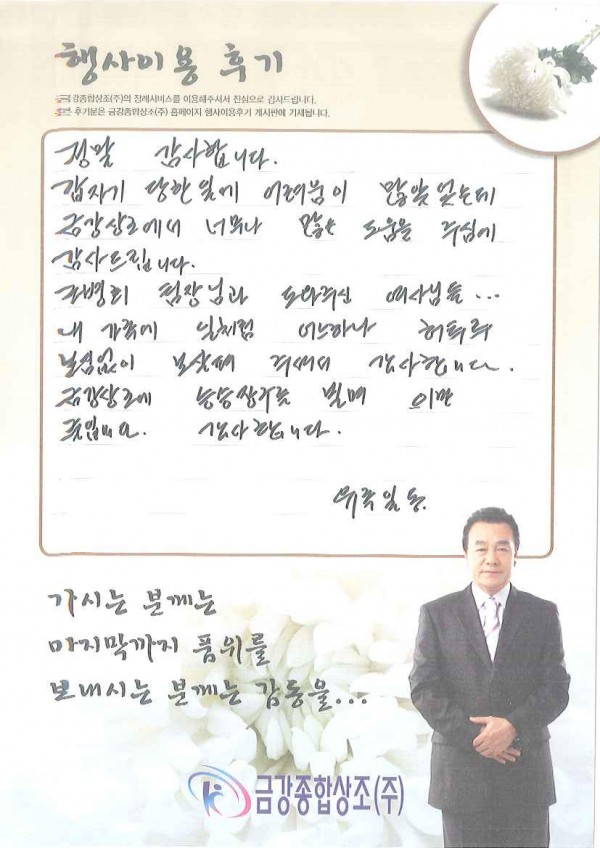 행사이용 후기
금강종합상조(주)의 장례서비스를 이용해주셔서 진심으로 감사드립니다.
후기분은 금강종합상조(주) 홈페이지 행사이용후기 게시판에 기재됩니다.
정말 감사합니다.
갑자기 당한일에 어려움이 많았었는데
금강상조에서 너무나 많은 도움을 주심에
감사드립니다.
팀장님과 도와주신 여사님들...
내 가족에 일처럼 어느하나 허투루
보살펴 주셔서 감사합니다.
금강상조에 빌며 이만
감사합니다.
유족일동.
가시는 분께는
마지막까지 품위를
보내시는 분께는 감동을...
금강종합상조(주)